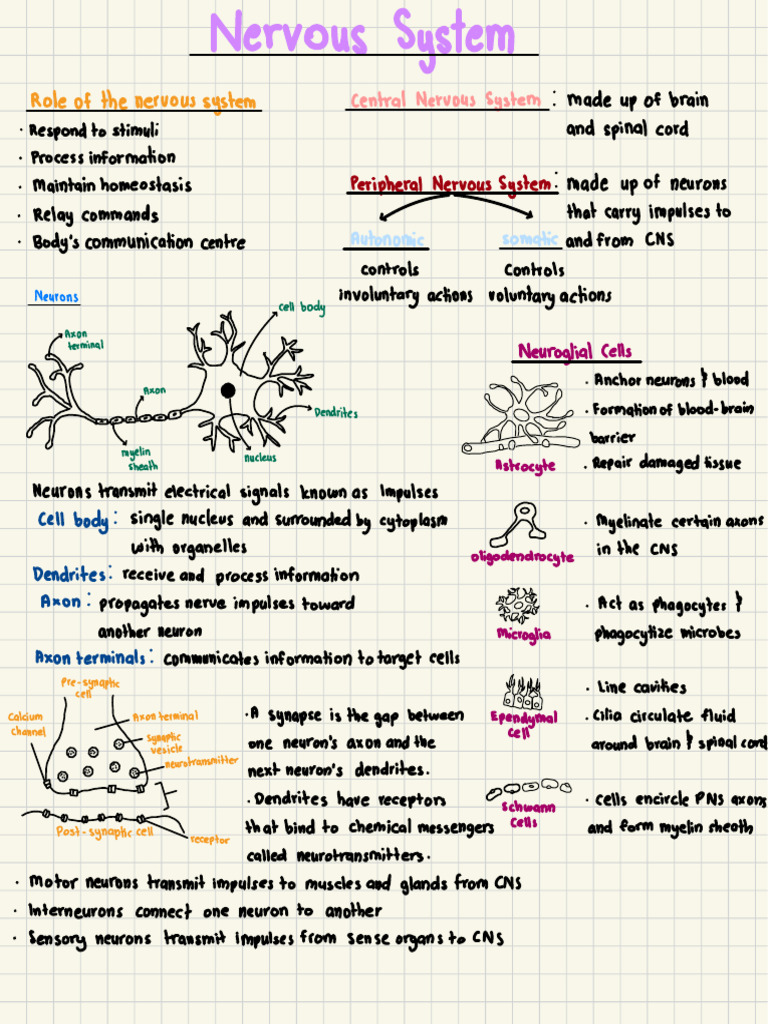 Nervous System
Role of the nervous system
· Respond to stimuli
· Process information
· Maintain homeostasis
· Relay commands
· Body's communication centre
Central Nervous System: made up of brain
and spinal cord
Peripheral Nervous System: made up of neurons
that carry impulses to
and from CNS
Autonomic
controls
involuntary actions
somatic
Controls
voluntary actions
Neurons
Axon
terminal
Axon
myelin
sheath
cell body
Dendrites
nucleus
Neurons transmit electrical signals known as Impulses
Cell body: single nucleus and surrounded by cytoplasm
with organelles
Dendrites: receive and process information
Axon: propagates nerve impulses toward
another neuron
Axon terminals: communicates information to target cells
Pre-synaptic
cell
Calcium
channel
Axon terminal
synaptic
vesicle
neurotransmitter
Post-synaptic cell
receptor
· A synapse is the gap between
one neuron's axon and the
next neuron's dendrites.
· Dendrites have receptors
that bind to chemical messengers
called neurotransmitters.
· Motor neurons transmit impulses to muscles and glands from CNS
· Interneurons connect one neuron to another
· Sensory neurons transmit impulses from sense organs to CNS
Neuroglial Cells
Astrocyte
· Anchor neurons & blood
· Formation of blood-brain
barrier
· Repair damaged tissue
oligodendrocyte
· Myelinate certain axons
in the CNS
Microglia
· Act as phagocytes &
phagocytize microbes
Ependymal
cell
· Line cavities
· Cilia circulate fluid
around brain & spinal cord
Schwann
Cells
· Cells encircle PNS axons
and form myelin sheath